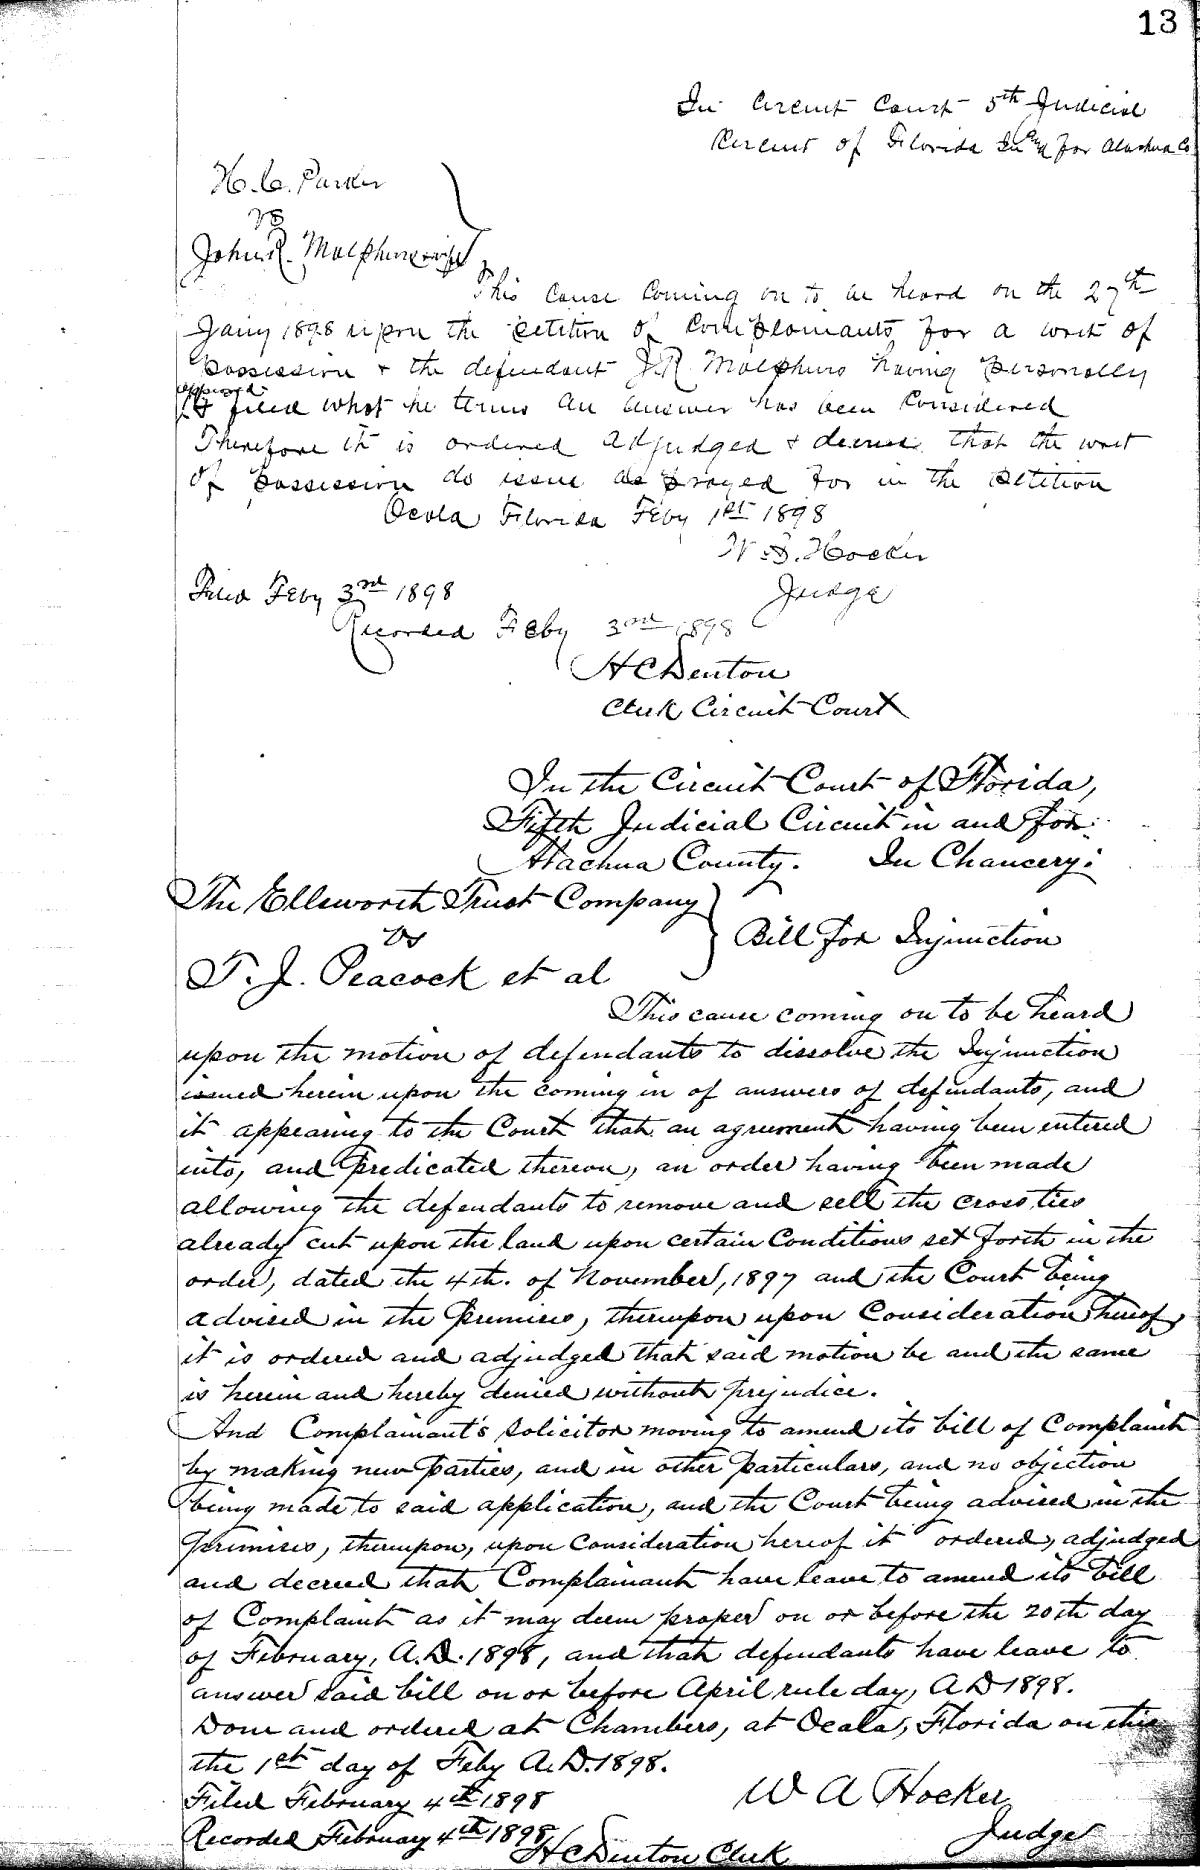 13
In Circuit Court 5th Judicial
Circuit of Florida In and for Alachua Co
H. C. Parker
vs
John R. Malphurs & wife
This cause coming on to be heard on the 27th
Jany 1898 upon the petition of Complainants for a writ of
possession & the defendant J. R. Malphurs having personally
appeared
& filed what he terms an answer has been Considered
Therefore it is ordered adjudged & decreed that the writ
of possession do issue as prayed for in the petition
Ocala Florida Feby 1st 1898
W. A. Hocker
Judge
Filed Feby 3rd 1898
Recorded Feby 3rd 1898
H C Denton
Clerk Circuit Court
In the Circuit Court of Florida,
Fifth Judicial Circuit in and for
Alachua County. In Chancery:
The Ellsworth Trust Company
vs
Bill for Injunction
T. J. Peacock et al
This cause coming on to be heard
upon the motion of defendants to dissolve the Injunction
issued herein upon the coming in of answers of defendants, and
it appearing to the Court that an agreement having been entered
into, and predicated thereon, an order having been made
allowing the defendants to remove and sell the cross ties
already cut upon the land upon certain Conditions set forth in the
order, dated the 4th. of November, 1897 and the Court being
advised in the premises, thereupon upon Consideration hereof
it is ordered and adjudged that said motion be and the same
is herein and hereby denied without prejudice.
And Complainant's Solicitor moving to amend its bill of Complaint
by making new parties, and in other particulars, and no objection
being made to said application, and the Court being advised in the
premises, thereupon, upon Consideration hereof it ordered, adjudged
and decreed that Complainant have leave to amend its bill
of Complaint as it may deem proper on or before the 20th day
of February, A.D. 1898, and that defendants have leave to
answer said bill on or before April rule day, A D 1898.
Done and ordered at Chambers, at Ocala, Florida on this
the 1st day of Feby A.D. 1898.
W A Hocker
Judge
Filed February 4th 1898
Recorded February 4th 1898
H C Denton Clerk